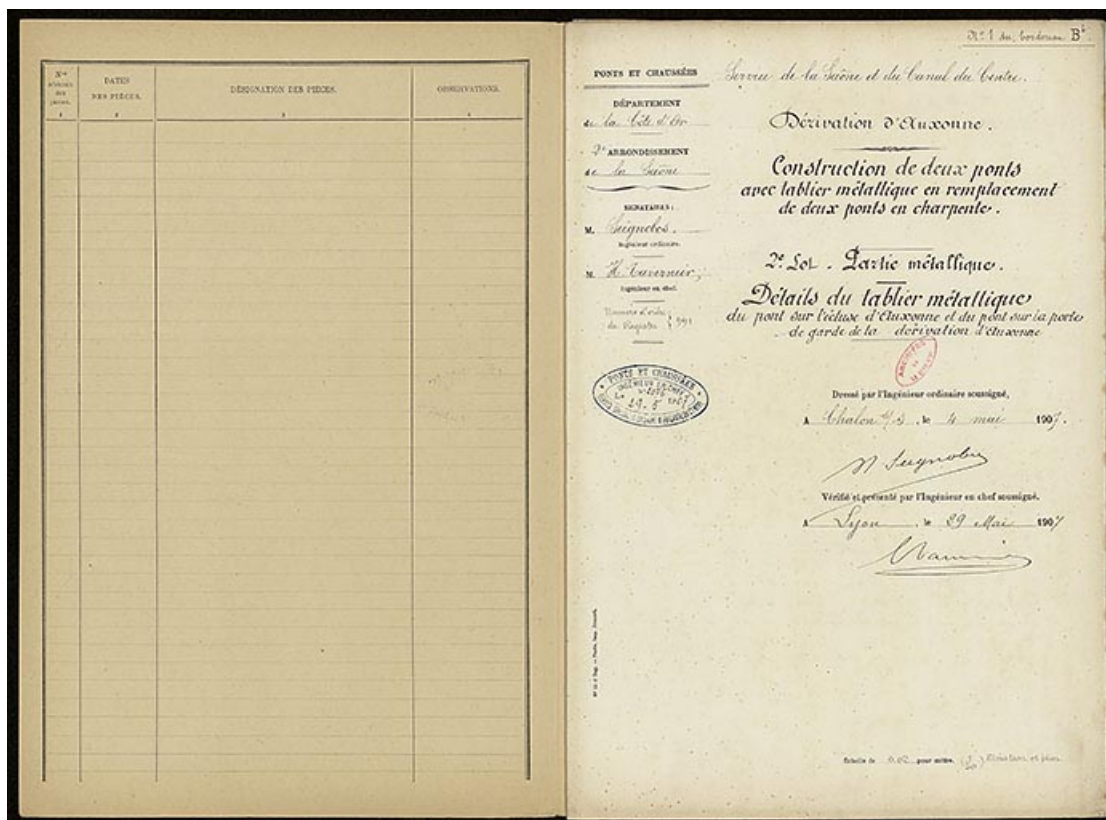 Nos
d'ordre
des
pièces.
DATES
DES PIÈCES.
DÉSIGNATION DES PIÈCES.
OBSERVATIONS.
1
2
3
4
No 1 du bordereau B1
PONTS ET CHAUSSÉES
DÉPARTEMENT
de la Côte d'Or
2e ARRONDISSEMENT
de la Saône
SIGNATAIRES :
M. Seignobos.
Ingénieur ordinaire.
M. H. Tavernier,
Ingénieur en chef.
Numéro d'ordre
du Registre 991
PONTS ET CHAUSSÉES
INGÉNIEUR EN CHEF
29-5
Service de la Saône et du Canal du Centre.
Dérivation d'Auxonne.
Construction de deux ponts
avec tablier métallique en remplacement
de deux ponts en charpente.
2e Lot. Partie métallique.
Détails du tablier métallique
du pont sur l'écluse d'Auxonne et du pont sur la porte
de garde de la dérivation d'Auxonne
ARCHIVES
Dressé par l'Ingénieur ordinaire soussigné,
A Chalon s/s, le 4 mai 1907.
Seignobos
Vérifié et présenté par l'Ingénieur en chef soussigné,
A Lyon, le 29 Mai 1907
Echelle de 0.02 pour mètre. Elévation et plan